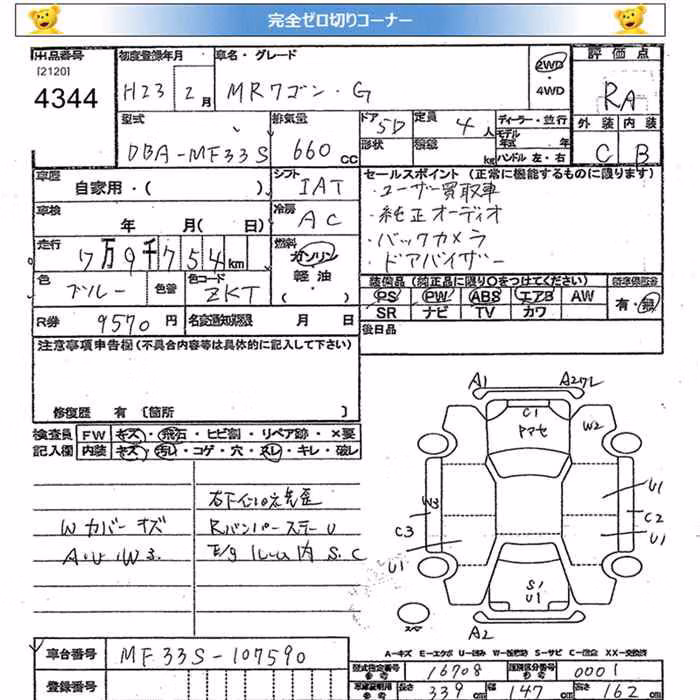 完全ゼロ切りコーナー
出品番号
[2120]
4344
初度登録年月
H23 2月
車名・グレード
MRワゴン・G
2WD・4WD
評価点
RA
外装 内装
C B
型式
DBA-MF33S
排気量
660cc
ドア 5D
形状
定員 4人
積載 kg
ディーラー・並行
モデル年式 年
ハンドル 左・右
車歴
自家用・( )
シフト
IAT
車検
年 月( 日)
冷房
AC
走行
7万9千754km
燃料
ガソリン
軽油
・( )
色
ブルー
色替
色コード
ZKT
R券 9570円
名変通知期限 月 日
セールスポイント (正常に機能するものに限ります)
・ユーザー買取車
・純正オーディオ
・バックカメラ
・ドアバイザー
装備品 (純正品に限り〇をつけてください)
PS PW ABS エアB AW
SR ナビ TV カワ
有・無
後日品
注意事項申告欄 (不具合内容等は具体的に記入して下さい)
修復歴 有 [箇所 ]
検査員記入欄
FW キズ・飛石・ヒビ割・リペア跡・×要
内装 キズ・汚れ・コゲ・穴・スレ・キレ・破レ
Wカバーキズ
A・U・W3.
Rバンパーステー U
S.C
A1
C1
W2
W3
C3
U1
U1
C2
U1
S1
U1
A2
A-キズ E-エクボ U-凹み W-板金跡 S-サビ C-腐食 XX-交換済
車台番号 MF33S-107590
登録番号
型式指定番号 参考 16708
類別区分番号 参考 0001
長さ 339cm
幅 147cm
高さ 162cm